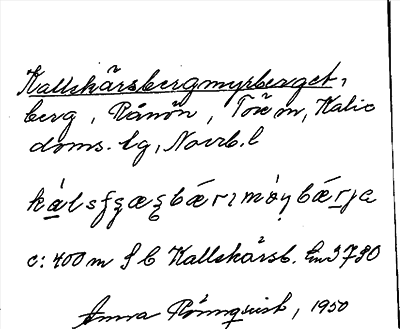 Kallskärsbergmyrberget,
berg, Rånön, Töre sn, Kalix
doms. lg, Norrb. l
c: 400 m S b Kallskärsb. Em 3780
Anna Rönnqvist, 1950